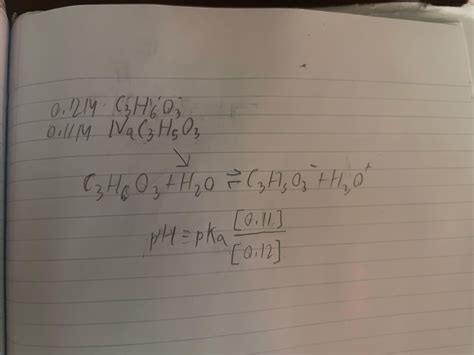 0.12M C₃H₆O₃
0.11M NaC₃H₅O₃
↘
C₃H₆O₃+H₂O ⇌ C₃H₅O₃⁻+H₃O⁺
pH=pKa [0.11]/[0.12]